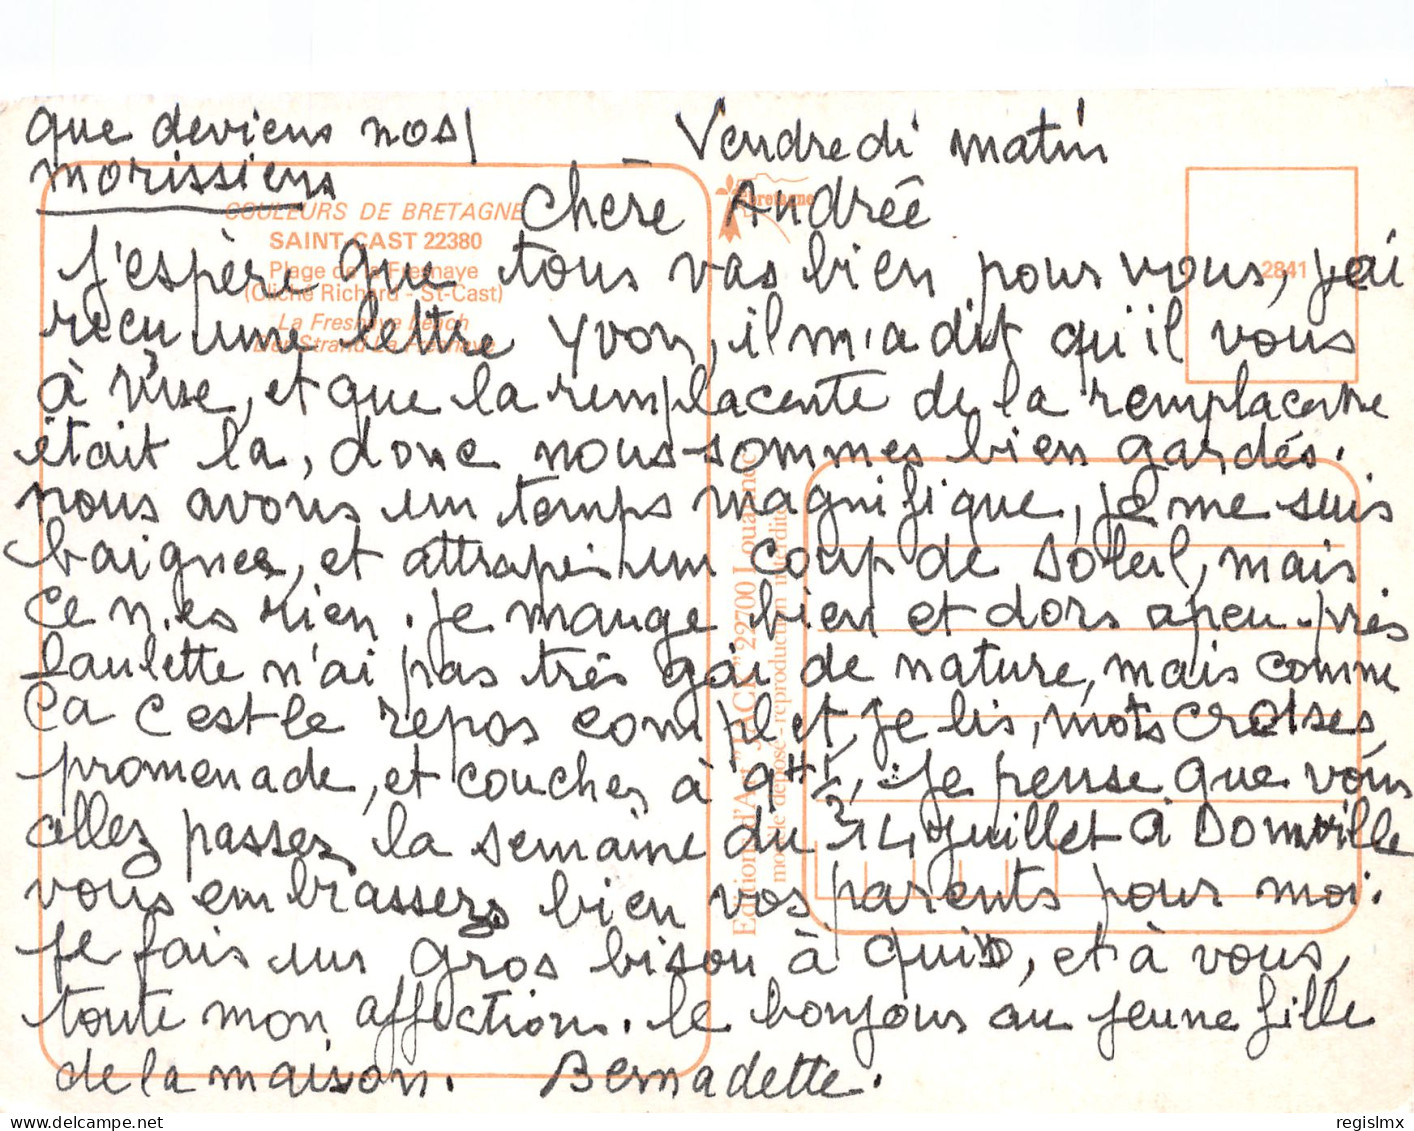 que deviens nos
morissiens
Vendredi matin
Chère Andrée
J'espère que tous vas bien pour vous, j'ai
recu une lettre Yvon, il m'a dit qu'il vous
à vue, et que la remplacente de la remplacente
était la, donc nous sommes bien gardés.
nous avons un temps magnifique, je me suis
baigner, et attraper un coup de soleil, mais
ce n.es rien. Je mange bien et dors apeu-près
Paulette n'ai pas très gai de nature, mais comme
ça c'est le repos complet, je lis, mots croises,
promenade, et coucher à 9H 1/2, je pense que vous
allez passer la semaine du 14 juillet à Domville
vous embrasserz bien vos parents pour moi.
je fais un gros bisou à quid, et à vous,
toute mon affection. le bonjour au jeune fille
de la maison. Bernadette.
COULEURS DE BRETAGNE
SAINT-CAST 22380
Plage de la Fresnaye
(Cliché Richard - St-Cast)
La Fresnaye beach
Der Strand La Fresnaye
bretagne
2841
Edition d'Art "JACK" 22700 Louannec
modèle déposé - reproduction interdite
© regislmx